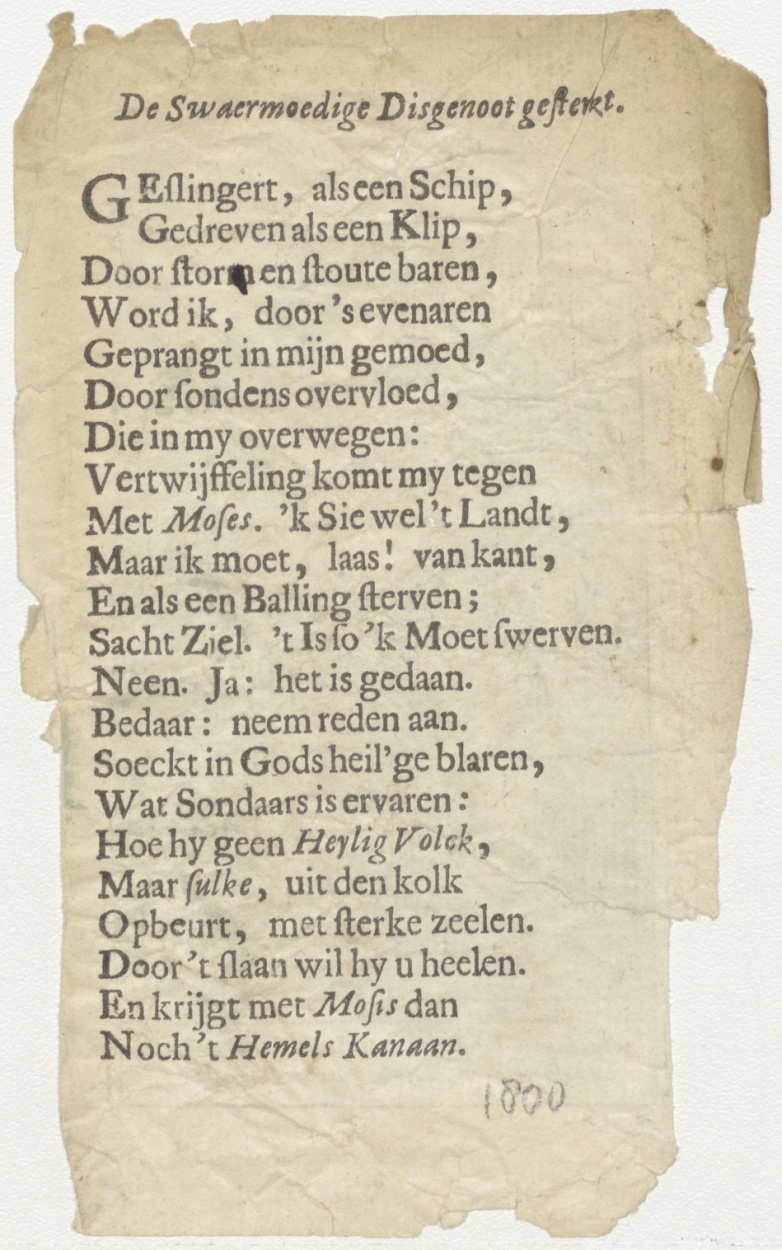 De Swaermoedige Disgenoot gesterkt.
GEſlingert, als een Schip,
Gedreven als een Klip,
Door ſtorm en ſtoute baren,
Word ik, door 's evenaren
Geprangt in mijn gemoed,
Door ſondens overvloed,
Die in my overwegen:
Vertwijffeling komt my tegen
Met Moſes. 'k Sie wel 't Landt,
Maar ik moet, laas! van kant,
En als een Balling ſterven;
Sacht Ziel. 't Is ſo 'k Moet ſwerven.
Neen. Ja: het is gedaan.
Bedaar: neem reden aan.
Soeckt in Gods heil'ge blaren,
Wat Sondaars is ervaren:
Hoe hy geen Heylig Volck,
Maar ſulke, uit den kolk
Opbeurt, met ſterke zeelen.
Door 't ſlaan wil hy u heelen.
En krijgt met Moſis dan
Noch 't Hemels Kanaan.
1800